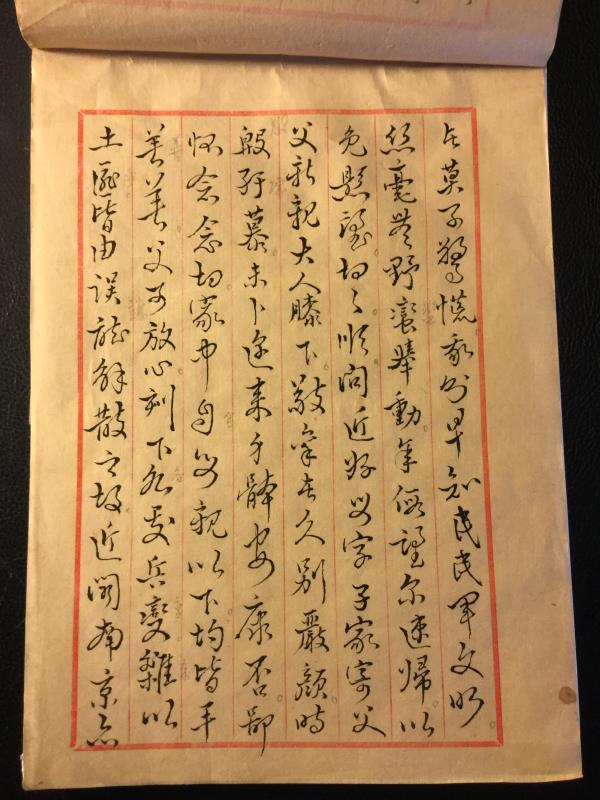 莫不驚慌早知民軍文明
絲毫無野蠻舉動年假望尔速歸以
免懸望切之順問近好父字子家寄父
父親大人膝下敬稟者久別嚴顏時
殷孺慕未卜近來身體安康否鄙
懷念念切家中自父親以下均皆平
善父可放心刻下各處兵變雖以
土匪皆由誤解散之故近聞南京亦